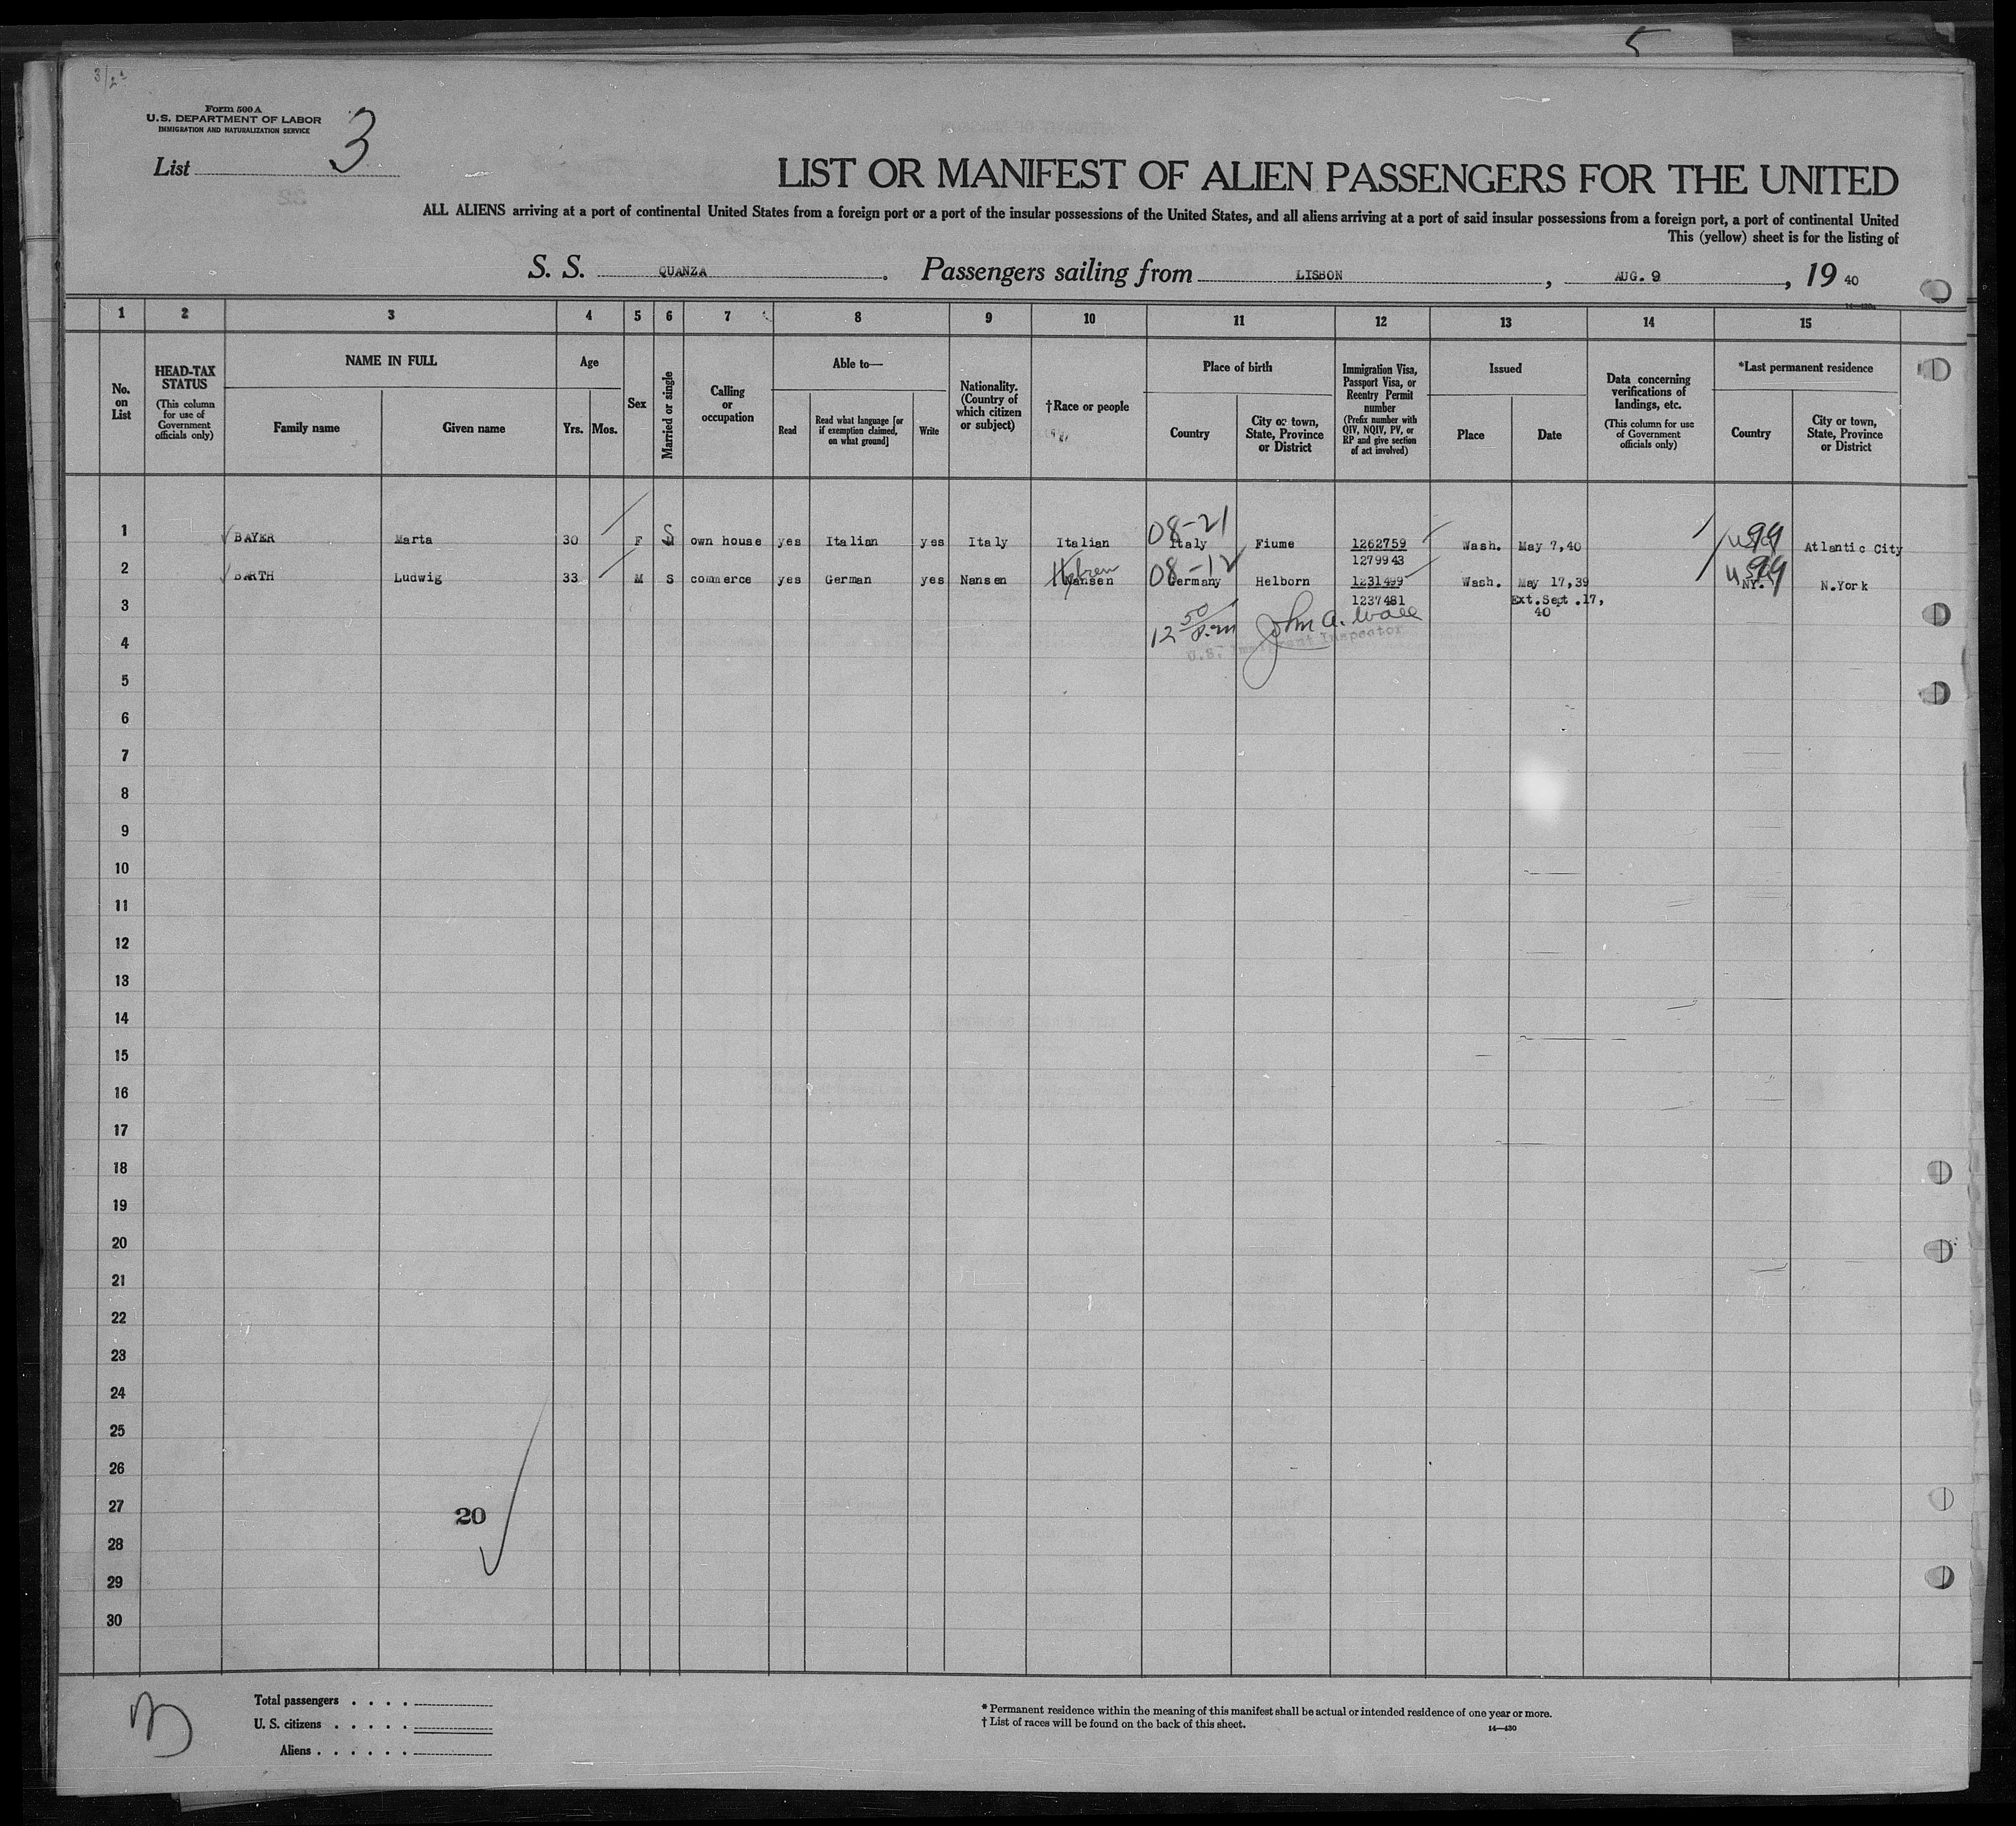 5
3/2
Form 500 A
U.S. DEPARTMENT OF LABOR
IMMIGRATION AND NATURALIZATION SERVICE
List 3
LIST OR MANIFEST OF ALIEN PASSENGERS FOR THE UNITED
ALL ALIENS arriving at a port of continental United States from a foreign port or a port of the insular possessions of the United States, and all aliens arriving at a port of said insular possessions from a foreign port, a port of continental United
This (yellow) sheet is for the listing of
S. S. QUANZA. Passengers sailing from LISBON, AUG. 9, 19 40
14—430a
1 2 3 4 5 6 7 8 9 10 11 12 13 14 15
No. on List
HEAD-TAX STATUS
(This column for use of Government officials only)
NAME IN FULL
Family name
Given name
Age
Yrs. Mos.
Sex
Married or single
Calling or occupation
Able to—
Read
Read what language [or if exemption claimed, on what ground]
Write
Nationality. (Country of which citizen or subject)
†Race or people
Place of birth
Country
City or town, State, Province or District
Immigration Visa, Passport Visa, or Reentry Permit number
(Prefix number with QIV, NQIV, PV, or RP and give section of act involved)
Issued
Place
Date
Data concerning verifications of landings, etc.
(This column for use of Government officials only)
*Last permanent residence
Country
City or town, State, Province or District
08-21
1 BAYER Marta 30 F S own house yes Italian yes Italy Italian Italy Fiume 1262759 Wash. May 7,40 USA 99 Atlantic City
1279943
Hebrew 08-12
2 BARTH Ludwig 33 M S commerce yes German yes Nansen Nansen Germany Helborn 1231499 Wash. May 17,39 USA 99 NY. N.York
3 1237481 Ext.Sept.17,
40
12 50/P.m John A. Wall
U.S. Immigrant Inspector
4
5
6
7
8
9
10
11
12
13
14
15
16
17
18
19
20
21
22
23
24
25
26
27
20
28
29
30
3
Total passengers . . . .
U. S. citizens . . . . .
Aliens . . . . . .
* Permanent residence within the meaning of this manifest shall be actual or intended residence of one year or more.
† List of races will be found on the back of this sheet.
14—430